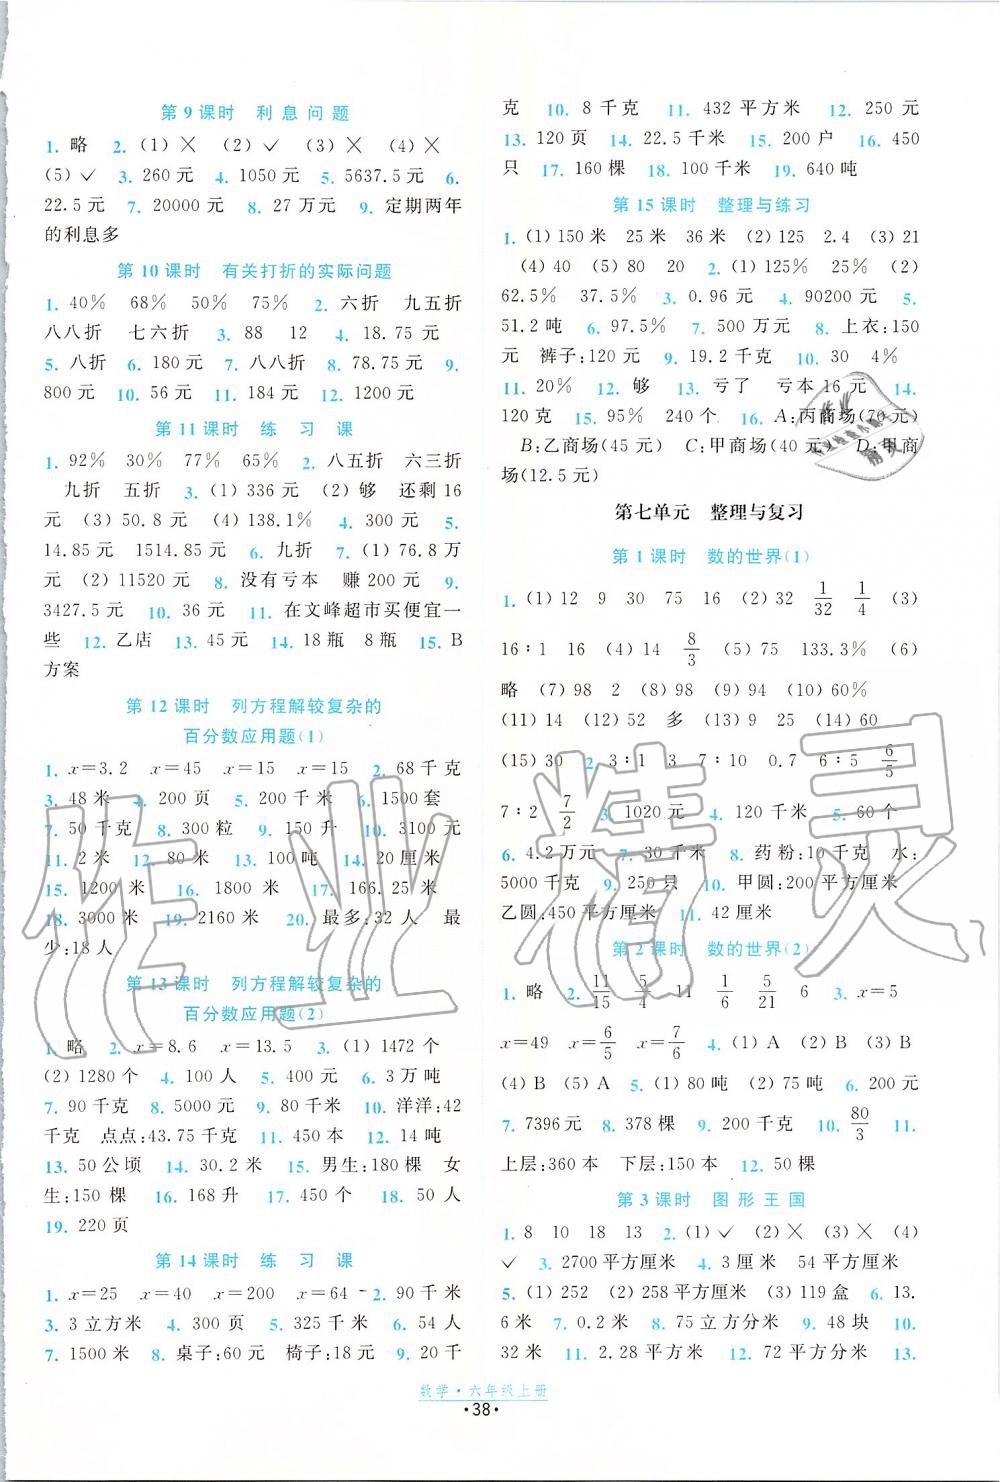 第9课时 利息问题
1. 略 2. (1)× (2)✓ (3)× (4)×
(5)✓ 3. 260元 4. 1050元 5. 5637.5元 6.
22.5元 7. 20000元 8. 27万元 9. 定期两年
的利息多
第10课时 有关打折的实际问题
1. 40% 68% 50% 75% 2. 六折 九五折
八八折 七六折 3. 88 12 4. 18.75元
5. 八折 6. 180元 7. 八八折 8. 78.75元 9.
800元 10. 56元 11. 184元 12. 1200元
第11课时 练习课
1. 92% 30% 77% 65% 2. 八五折 六三折
九折 五折 3. (1)336元 (2)够 还剩16
元 (3)50.8元 (4)138.1% 4. 300元 5.
14.85元 1514.85元 6. 九折 7. (1)76.8万
元 (2)11520元 8. 没有亏本 赚200元 9.
3427.5元 10. 36元 11. 在文峰超市买便宜一
些 12. 乙店 13. 45元 14. 18瓶 8瓶 15. B
方案
第12课时 列方程解较复杂的
百分数应用题(1)
1. x=3.2 x=45 x=15 x=15 2. 68千克
3. 48米 4. 200页 5. 200千米 6. 1500套
7. 50千克 8. 300粒 9. 150升 10. 3100元
11. 2米 12. 80米 13. 100吨 14. 20厘米
15. 1200米 16. 1800米 17. 166.25米
18. 3000米 19. 2160米 20. 最多:32人 最
少:18人
第13课时 列方程解较复杂的
百分数应用题(2)
1. 略 2. x=8.6 x=13.5 3. (1)1472个
(2)1280个 4. 100人 5. 400元 6. 3万吨
7. 90千克 8. 5000元 9. 80千米 10. 洋洋:42
千克 点点:43.75千克 11. 450本 12. 14吨
13. 50公顷 14. 30.2米 15. 男生:180棵 女
生:150棵 16. 168升 17. 450个 18. 50人
19. 220页
第14课时 练习课
1. x=25 x=40 x=200 x=64 2. 90千米
3. 3立方米 4. 300页 5. 325千米 6. 54人
7. 1500米 8. 桌子:60元 椅子:18元 9. 20千
克 10. 8千克 11. 432平方米 12. 250元
13. 120页 14. 22.5千米 15. 200户 16. 450
只 17. 160棵 18. 100千米 19. 640吨
第15课时 整理与练习
1. (1)150米 25米 36米 (2)125 2.4 (3)21
(4)40 (5)80 20 2. (1)125% 25% (2)
62.5% 37.5% 3. 0.96元 4. 90200元 5.
51.2吨 6. 97.5% 7. 500万元 8. 上衣:150
元 裤子:120元 9. 19.2千克 10. 30 4%
11. 20% 12. 够 13. 亏了 亏本16元 14.
120克 15. 95% 240个 16. A:丙商场(70元)
B:乙商场(45元) C:甲商场(40元) D:甲商
场(12.5元)
第七单元 整理与复习
第1课时 数的世界(1)
1. (1)12 9 30 75 16 (2)32 1/32 1/4 (3)
16∶1 16 (4)14 8/3 (5)75 133.3% (6)
略 (7)98 2 (8)98 (9)98 (10)60%
(11)14 (12)52 多 (13)9 25 (14)60
(15)30 2. 3∶1 3 0.7 6∶5 6/5
7∶2 7/2 3. 1020元 4. 120千米 5. 60个
6. 4.2万元 7. 30千米 8. 药粉:10千克 水:
5000千克 9. 250只 10. 甲圆:200平方厘米
乙圆:450平方厘米 11. 42厘米
第2课时 数的世界(2)
1. 略 2. 11/15 5/4 11 1/6 5/21 6 3. x=5
x=49 x=6/5 x=7/6 4. (1)A (2)B (3)B
(4)B (5)A 5. (1)80吨 (2)75吨 6. 200元
7. 7396元 8. 378棵 9. 200千克 10. 80/3 11.
上层:360本 下层:150本 12. 800米
第3课时 图形王国
1. 8 10 18 13 2. (1)✓ (2)× (3)× (4)
✓ 3. 2700平方厘米 4. 3厘米 6平方厘米
5. (1)252 (2)258平方厘米 (3)119盒 6. 13.
6米 7. 0.2米 8. 75立方分米 9. 48块 10.
32米 11. 2.28平方米 12. 72平方分米 13.
数学·六年级上册
·38·
作业精灵